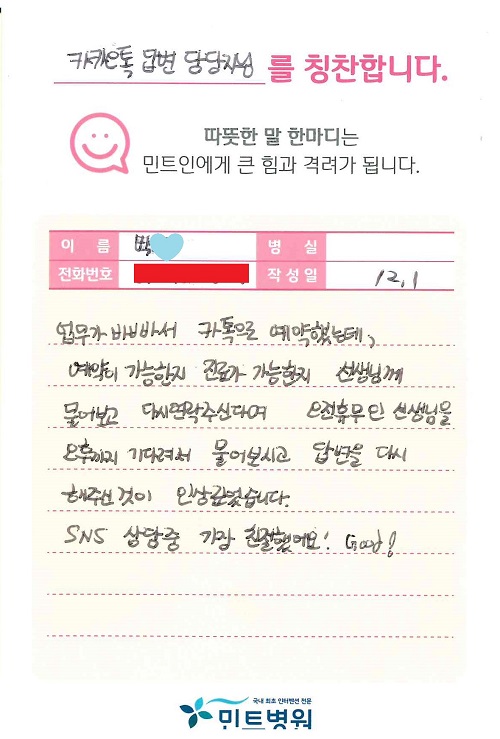 카카오톡 답변 담당자님 를 칭찬합니다.
따뜻한 말 한마디는
민트인에게 큰 힘과 격려가 됩니다.
이 름 박 병 실
전화번호 작성일 12.1
업무가 바빠서 카톡으로 예약했는데,
예약이 가능한지 진료가 가능한지 선생님께
물어보고 다시연락주신다며 오전휴무인 선생님을
오후까지 기다려서 물어보시고 답변을 다시
해주신것이 인상깊었습니다.
SNS 상담중 가장 친절했어요! Good!
국내 최초 인터벤션 전문
민트병원